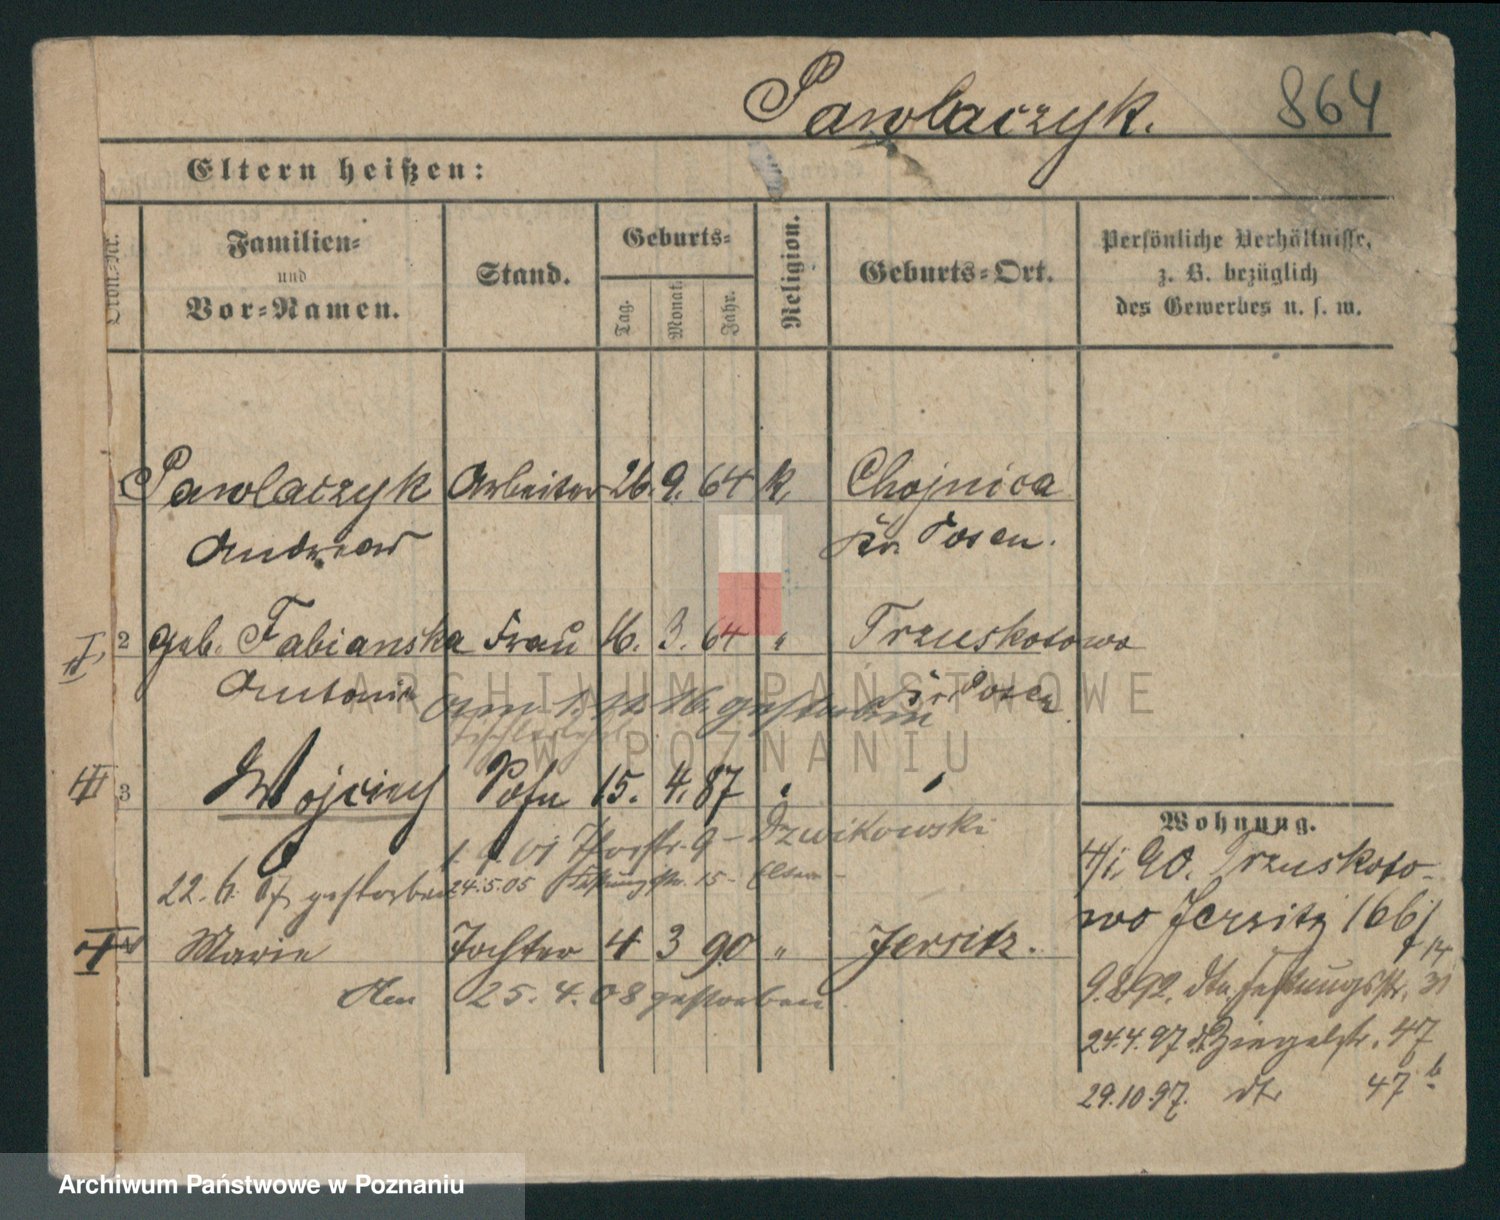 Pawlaczyk.
864
Eltern heißen:
Familien-
und
Vor-Namen.
Stand.
Geburts-
Tag.
Monat.
Jahr.
Religion.
Geburts-Ort.
Persönliche Verhältnisse,
z. B. bezüglich
des Gewerbes u. s. w.
Pawlaczyk Arbeiter 26. 9. 64 k. Chojnica
Andreas Kr. Posen.
2 geb. Fabianska Frau 16. 3. 64 " Trzuskotowo
Antonie Kr. Posen
am 1. 12. 16. gestorben
3 Wojciech Sohn 15. 4. 87 " "
1. 01 9 - Dzwikowski
22. 6. 07 gestorben 24.5.05 15 - Eltern -
Marie Tochter 4 3 90 " Jersitz.
Am 25. 4. 08 gestorben
Wohnung.
4/1. 90. Trzuskoto-
wo Jersitz 166/
14
9.8.92. dto. Festungsstr. 31
24.4.97 Ziegelstr. 47
29.10.97. dto 47 b.
ARCHIWUM PAŃSTWOWE
W POZNANIU
Archiwum Państwowe w Poznaniu